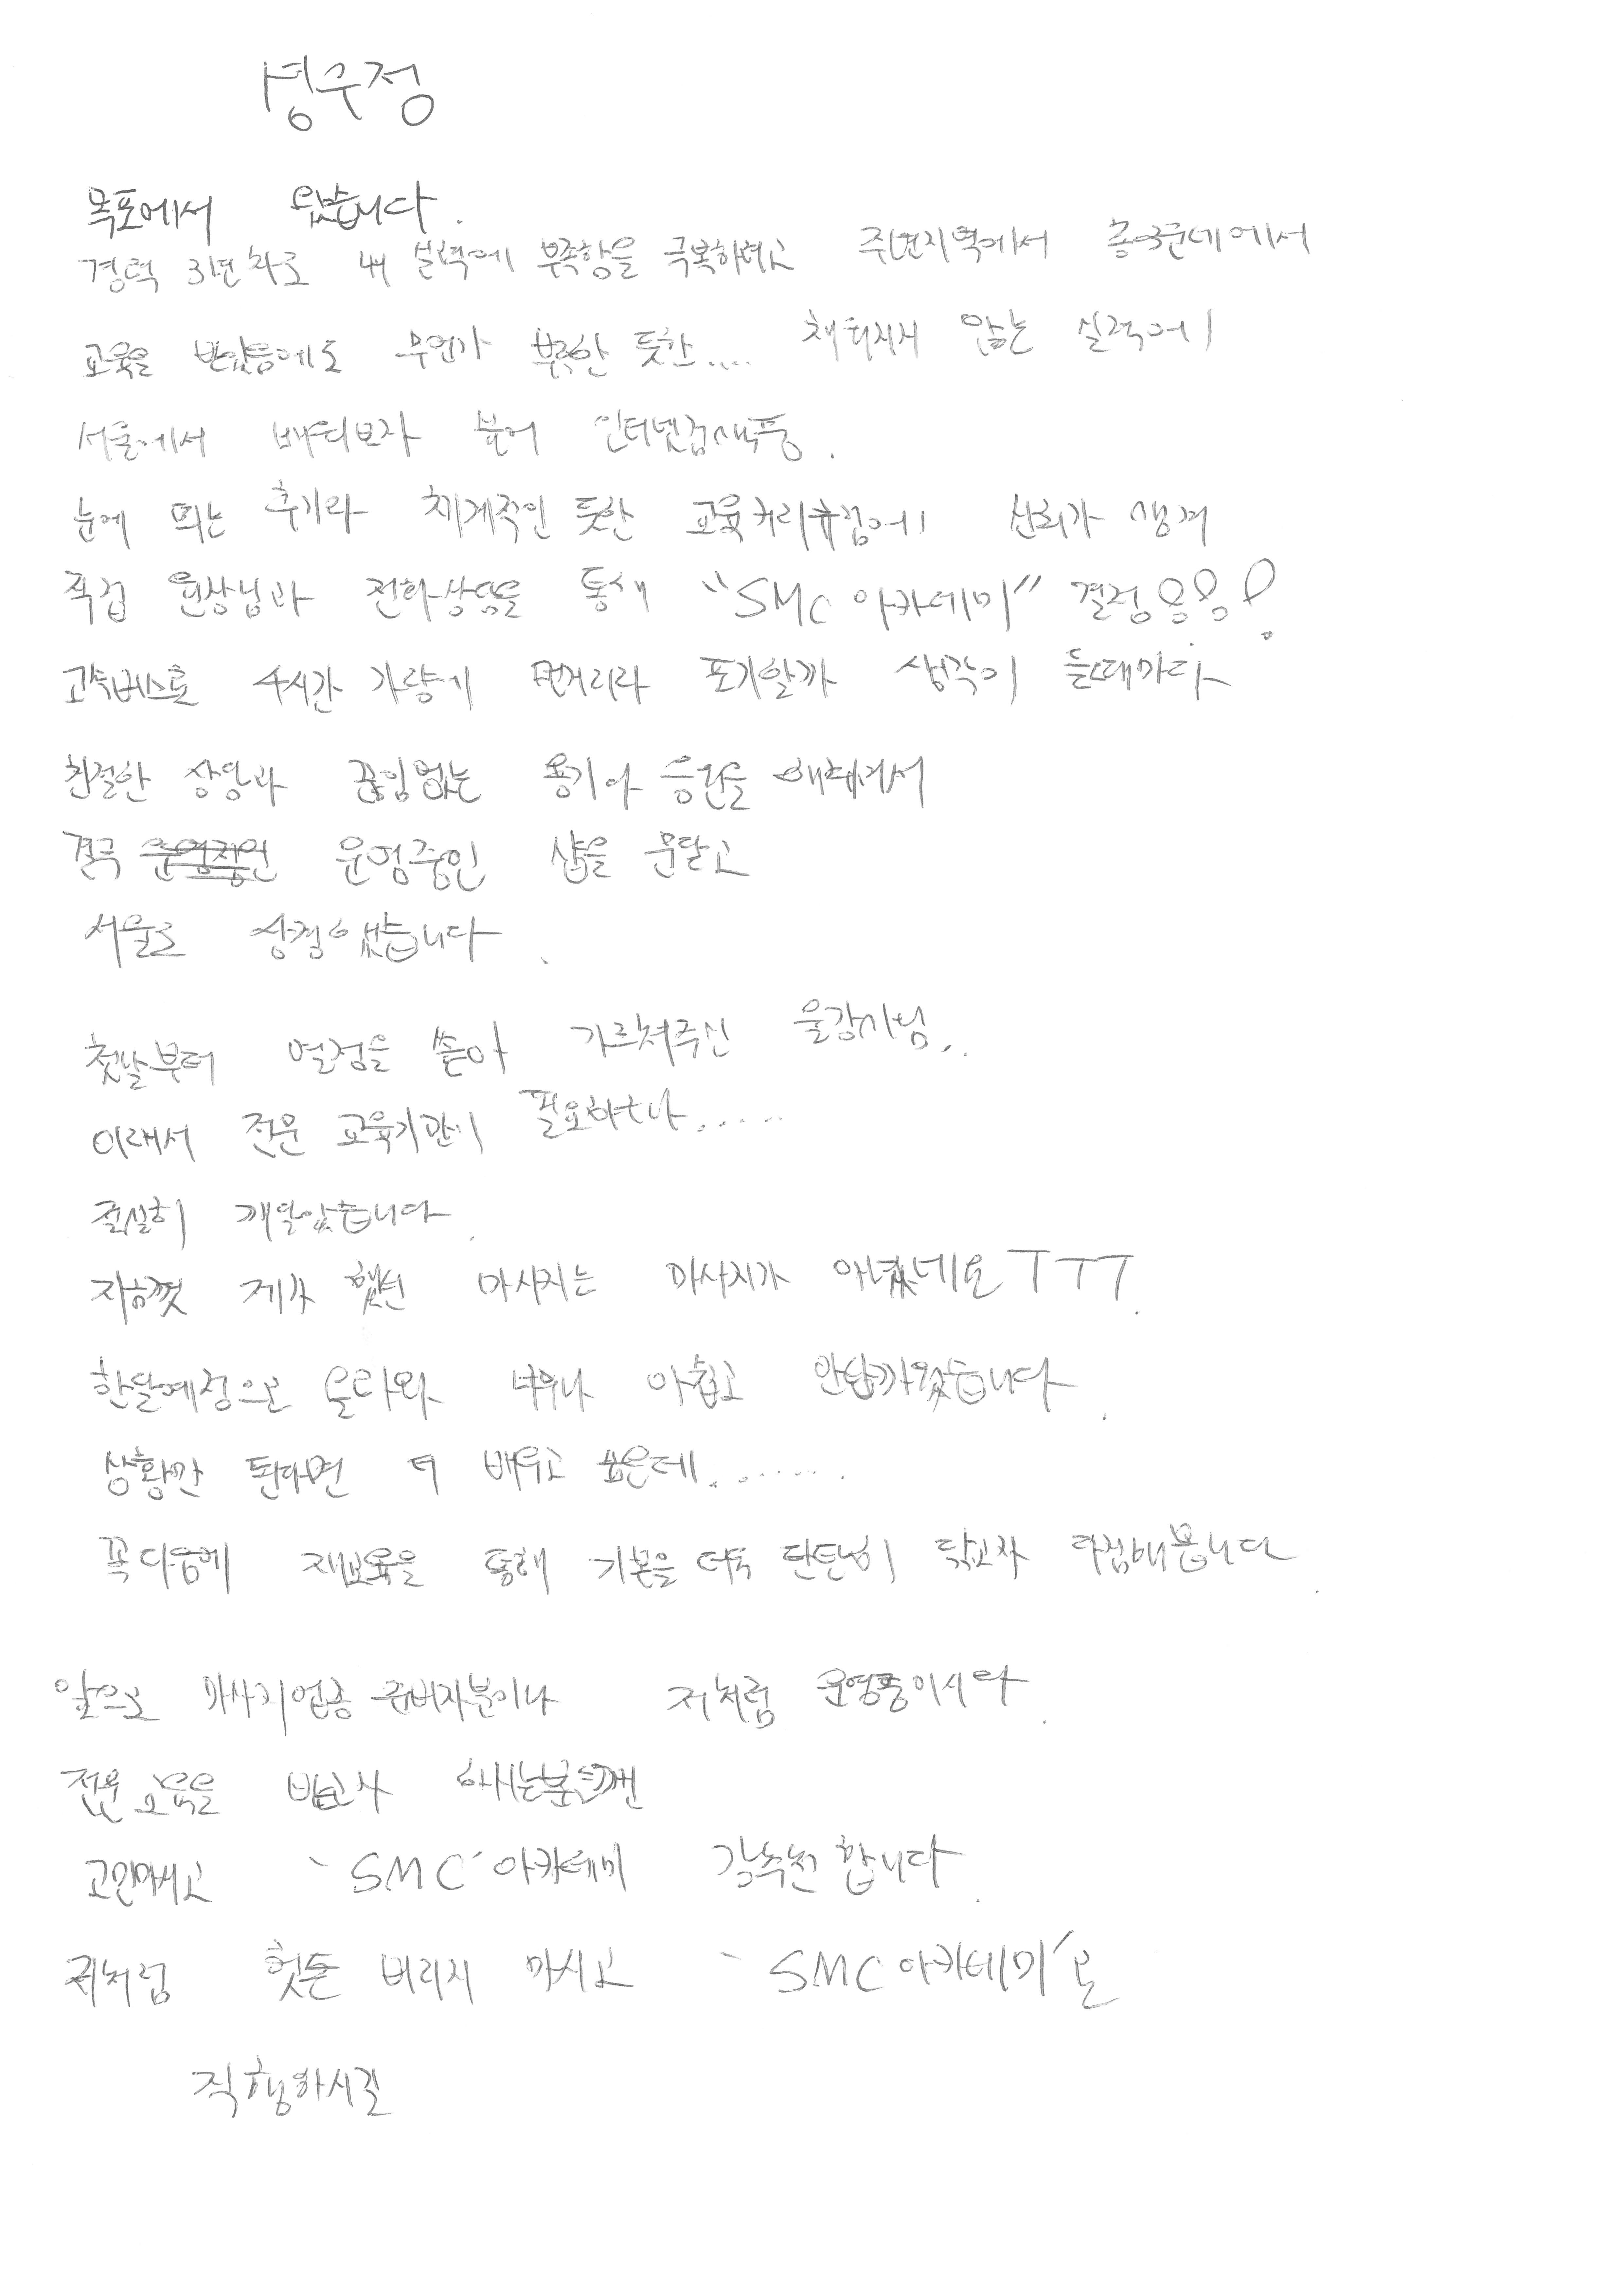 목포에서 왔습니다.
경력 3년차로 내 실력에 부족함을 극복하려고 주변지역에서 총 3군데에서
교육을 받았음에도 무언가 부족한 듯한.... 채워지지 않는 실력에
서울에서 배워보자 싶어 인터넷검색중.
눈에 띄는 후기와 체계적인 듯한 교육커리큘럼에 신뢰가 생겨
직접 원장님과 전화상담을 통해 "SMC 아카데미" 결정
고속버스로 4시간 가량에 먼거리라 포기할까 생각이 들때마다
친절한 상담과 끊임없는 용기와 응원을 해주셔서
결국 운영중인 샵을 문닫고
서울로 상경했습니다.
첫날부터 열정을 쏟아 가르쳐주신 울강사님..
이래서 전문 교육기관이 필요하구나......
절실히 깨달았습니다.
지금껏 제가 했던 마사지는 마사지가 아녔네요 ㅜㅜㅜ.
한달예정으로 올라와 너무나 아쉽고 안타까웠습니다.
상황만 된다면 더 배우고 싶은데........
꼭 다음에 재교육을 통해 기본을 더욱 단단히 닦고자 다짐해봅니다.
앞으로 마사지업종 준비자분이나 저처럼 운영중이시라.
전문 교육을 받고자 하시는분들껜
고민마시고 'SMC' 아카데미 강추천 합니다.
저처럼 헛돈 버리지 마시고 'SMC 아카데미'로
직행하시길